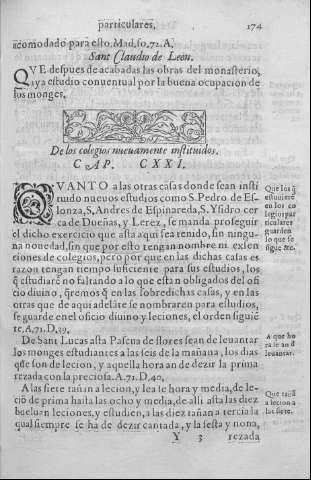 particulares. 174
acomodado para esto. Mad, fo, 71. A,
Sant Claudio de Leon.
QVE despues de acabadas las obras del monasterio,
aya estudio conuentual por la buena ocupacion de
los monges.
De los colegios nueuamente instituidos.
CAP. CXXI.
QVANTO a las otras casas donde sean insti
tuido nueuos estudios como S. Pedro de Es-
lonza, S, Andres de Espinareda, S. Ysidro cer
ca de Dueñas, y Lerez, se manda proseguir
el dicho exercicio que asta aqui sea tenido, sin ningu-
na nouedad, sin que por esto tengan nombre ni exsen
ciones de colegios, pero por que en las dichas casas es
razon tengan tiempo suficiente para sus estudios, los
q̃ estudiarẽ no faltando a lo que estan obligados del ofi
cio diuino, q̃remos q̃ en las sobredichas casas, y en las
otras que de aqui adelãte se nombraren para estudios,
se guarde en el oficio diuino, y leciones, el orden siguiẽ
te. A, 71. D, 39.
Que los q̃
estudiarẽ
en los co
legios par
ticulares
guarden
lo que se
sigue &c.
De Sant Lucas asta Pascua de flores sean de leuantar
los monges estudiantes a las seis de la mañana, los dias
q̃ se son de lecion, y aquella hora an de dezir la prima
rezada con la preciosa. A. 71. D, 40,
A que ho
ra se an d̃
leuantar.
A las siete tañan a lecion, y lea se hora y media, de le-
ciõ de prima hasta las ocho y media, de alli asta las diez
bueluan leciones, y estudien, a las diez tañan a tercia la
qual siempre se ha de dezir cantada, y la sesta y nona,
Que tañã
a lecion a
las siete.
Y 3 rezada